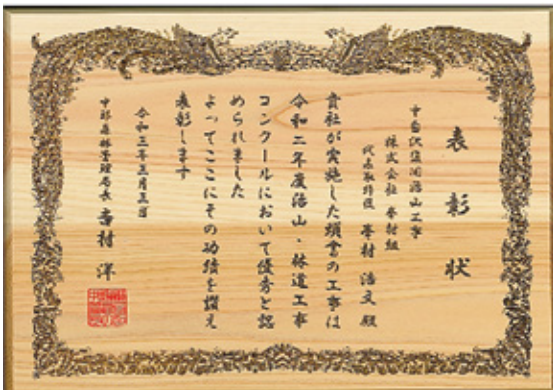 表彰状
治山工事
株式会社 峯村組
代表取締役 峯村 浩文 殿
貴社が実施した頭書の工事は
令和二年度治山・林道工事
コンクールにおいて優秀と認
められました
よってここにその功績を讃え
表彰します
令和三年三月三日
中部森林管理局長